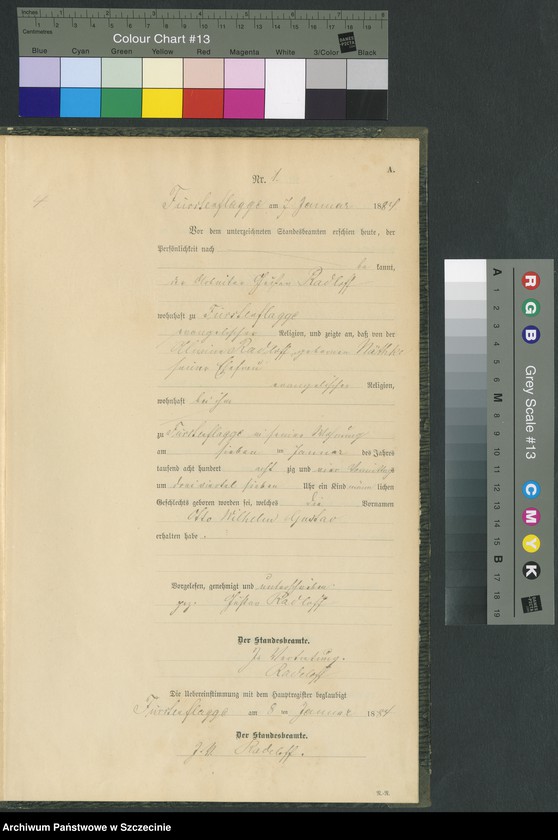 Inches
Centimetres
Colour Chart #13
DANES PICTA
Blue Cyan Green Yellow Red Magenta White 3/Color Black
Grey Scale #13
A 1 2 3 4 5 6 M 8 9 10 11 12 13 14 15 B 17 18 19
R G B C M Y K
A.
Nr. 1.
Fürstenflagge am 7 Januar 1884
Vor dem unterzeichneten Standesbeamten erschien heute, der
Persönlichkeit nach
be kannt,
der Arbeiter Gustav Radloff
wohnhaft zu Fürstenflagge
evangelischer Religion, und zeigte an, daß von der
Radloff geborenen
seiner Ehefrau
evangelischer Religion,
wohnhaft bei ihm
zu Fürstenflagge in seiner Wohnung
am sieben ten Januar des Jahres
tausend acht hundert acht zig und vier Vormittags
um dreiviertel sieben Uhr ein Kind männ lichen
Geschlechts geboren worden sei, welches die Vornamen
Otto Wilhelm Gustav
erhalten habe.
Vorgelesen, genehmigt und unterschrieben
gez. Gustav Radloff
Der Standesbeamte.
In Vertretung.
Radeloff
Die Uebereinstimmung mit dem Hauptregister beglaubigt
Fürstenflagge am 8 ten Januar 1884
Der Standesbeamte.
J. V. Radeloff.
Archiwum Państwowe w Szczecinie